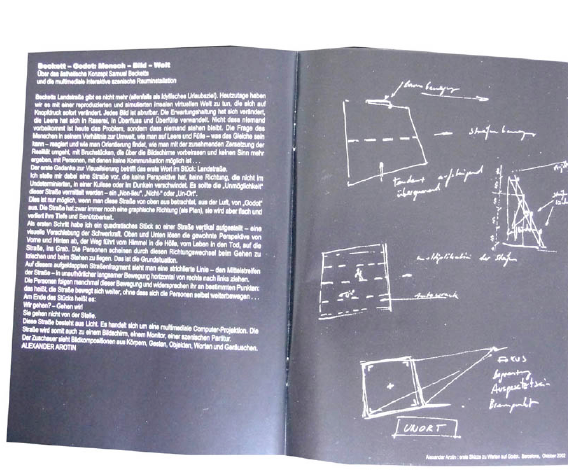 Beckett – Godot: Mensch – Bild – Welt
Über das ästhetische Konzept Samuel Becketts
und die multimediale interaktive szenische Rauminstallation
Becketts Landstraße gibt es nicht mehr (allenfalls als idyllisches Urlaubsziel). Heutzutage haben
wir es mit einer reproduzierten und simulierten irrealen virtuellen Welt zu tun, die sich auf
Knopfdruck sofort verändert. Jedes Bild ist abrufbar. Die Erwartungshaltung hat sich verändert,
die Leere hat sich in Raserei, in Überfluss und Überfülle verwandelt. Nicht dass niemand
vorbeikommt ist heute das Problem, sondern dass niemand stehen bleibt. Die Frage des
Menschen in seinem Verhältnis zur Umwelt, wie man auf Leere und Fülle – was das Gleiche sein
kann – reagiert und wie man Orientierung findet, wie man mit der zunehmenden Zersetzung der
Realität umgeht, mit Bruchstücken, die über die Bildschirme vorbeirasen und keinen Sinn mehr
ergeben, mit Personen, mit denen keine Kommunikation möglich ist . . .
Der erste Gedanke zur Visualisierung betrifft das erste Wort im Stück: Landstraße.
Ich stelle mir dabei eine Straße vor, die keine Perspektive hat, keine Richtung, die nicht im
Undeterminierten, in einer Kulisse oder im Dunkeln verschwindet. Es sollte die „Unmöglichkeit"
dieser Straße vermittelt werden – ein „Non-lieu", „Nicht-" oder „Un-Ort".
Dies ist nur möglich, wenn man diese Straße von oben aus betrachtet, aus der Luft, von „Godot"
aus. Die Straße hat zwar immer noch eine graphische Richtung (als Plan), sie wird aber flach und
verliert ihre Tiefe und Benützbarkeit.
Als ersten Schritt habe ich ein quadratisches Stück so einer Straße vertikal aufgestellt – eine
visuelle Verschiebung der Schwerkraft. Oben und Unten lösen die gewohnte Perspektive von
Vorne und Hinten ab, der Weg führt vom Himmel in die Hölle, vom Leben in den Tod, auf die
Straße, ins Grab. Die Personen scheinen durch diesen Richtungswechsel beim Gehen zu
kriechen und beim Stehen zu liegen. Das ist die Grundsituation.
Auf diesem aufgeklappten Straßenfragment sieht man eine strichlierte Linie – den Mittelstreifen
der Straße – in unaufhörlicher langsamer Bewegung horizontal von rechts nach links ziehen.
Die Personen folgen manchmal dieser Bewegung und widersprechen ihr an bestimmten Punkten:
das heißt, die Straße bewegt sich weiter, ohne dass sich die Personen selbst weiterbewegen . . .
Am Ende des Stücks heißt es:
Wir gehen? – Gehen wir!
Sie gehen nicht von der Stelle.
Diese Straße besteht aus Licht. Es handelt sich um eine multimediale Computer-Projektion. Die
Straße wird somit auch zu einem Bildschirm, einem Monitor, einer szenischen Partitur.
Der Zuschauer sieht Bildkompositionen aus Körpern, Gesten, Objekten, Worten und Geräuschen.
ALEXANDER AROTIN
Fokus
UNORT
Alexander Arotin : erste Skizze zu Warten auf Godot, Barcelona, Oktober 2002